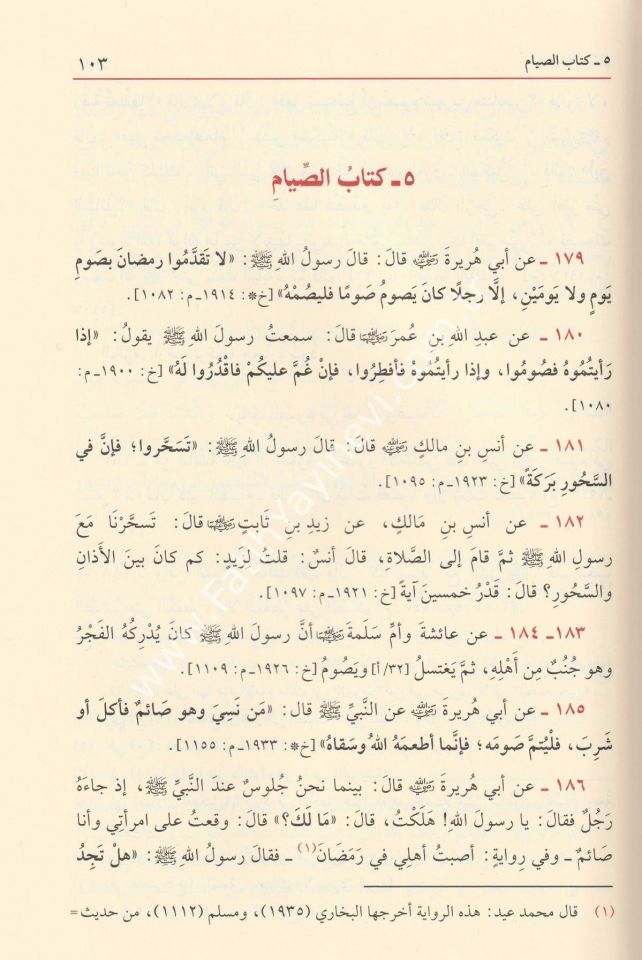 ٥ ـ كتاب الصيام
١٠٣
٥ ـ كتابُ الصِّيامِ
١٧٩ ـ عن أبي هُريرةَ رضي الله عنه قالَ: قالَ رسولُ اللهِ ﷺ: «لا تَقدَّمُوا رمضانَ بصَومِ
يَومٍ ولا يَومَيْنِ، إلَّا رجلًا كانَ يَصومُ صَومًا فليصُمْهُ» [خ*: ١٩١٤ـ م: ١٠٨٢].
١٨٠ ـ عن عبدِ اللهِ بنِ عُمرَ رضي الله عنهما قالَ: سمعتُ رسولَ اللهِ ﷺ يقولُ: «إذا
رَأيتُمُوهُ فصُومُوا، وإذا رأيتُمُوهُ فأفطِرُوا، فإنْ غُمَّ عليكُمْ فاقْدُرُوا لَهُ» [خ: ١٩٠٠ـ م:
١٠٨٠].
١٨١ ـ عن أنسِ بنِ مالكٍ رضي الله عنه قالَ: قالَ رسولُ اللهِ ﷺ: «تَسَحَّروا؛ فإنَّ في
السَّحُورِ بَرَكَةً» [خ: ١٩٢٣ـ م: ١٠٩٥].
١٨٢ ـ عن أنسِ بنِ مَالكٍ، عن زيدِ بنِ ثَابتٍ رضي الله عنهما قالَ: تَسحَّرْنَا مَعَ
رسولِ اللهِ ﷺ ثمَّ قامَ إلى الصَّلاةِ، قالَ أنسٌ: قلتُ لزَيدٍ: كم كانَ بينَ الأذَانِ
والسَّحُورِ؟ قالَ: قَدْرُ خمسينَ آيةً [خ: ١٩٢١ـ م: ١٠٩٧].
١٨٣ـ ١٨٤ ـ عن عائشةَ وأمِّ سَلَمةَ رضي الله عنهما أنَّ رسولَ اللهِ ﷺ كانَ يُدْرِكُهُ الفَجْرُ
وهو جُنُبٌ مِن أهْلِهِ، ثمَّ يَغتسلُ [٣٢/أ] ويَصُومُ [خ: ١٩٢٦ـ م: ١١٠٩].
١٨٥ ـ عن أبي هُريرةَ رضي الله عنه عن النَّبيِّ ﷺ قال: «مَن نَسِيَ وهو صَائمٌ فأكلَ أو
شَرِبَ، فلْيُتمَّ صَومَه؛ فإنَّما أطعمَهُ اللهُ وسَقاهُ» [خ*: ١٩٣٣ـ م: ١١٥٥].
١٨٦ ـ عن أبي هُريرةَ رضي الله عنه قالَ: بينما نحنُ جُلوسٌ عندَ النَّبيِّ ﷺ، إذ جاءَهُ
رَجُلٌ فقالَ: يا رسولَ اللهِ! هَلَكْتُ، قالَ: «مَا لَكَ؟» قالَ: وقعتُ على امرأتِي وأنا
صَائمٌ ـ وفي رِوايةٍ: أصبتُ أهلِي في رَمَضَانَ(١) ـ فقالَ رسولُ اللهِ ﷺ: «هلْ تَجِدُ
(١) قال محمد عيد: هذه الرواية أخرجها البخاري (١٩٣٥)، ومسلم (١١١٢)، من حديث =